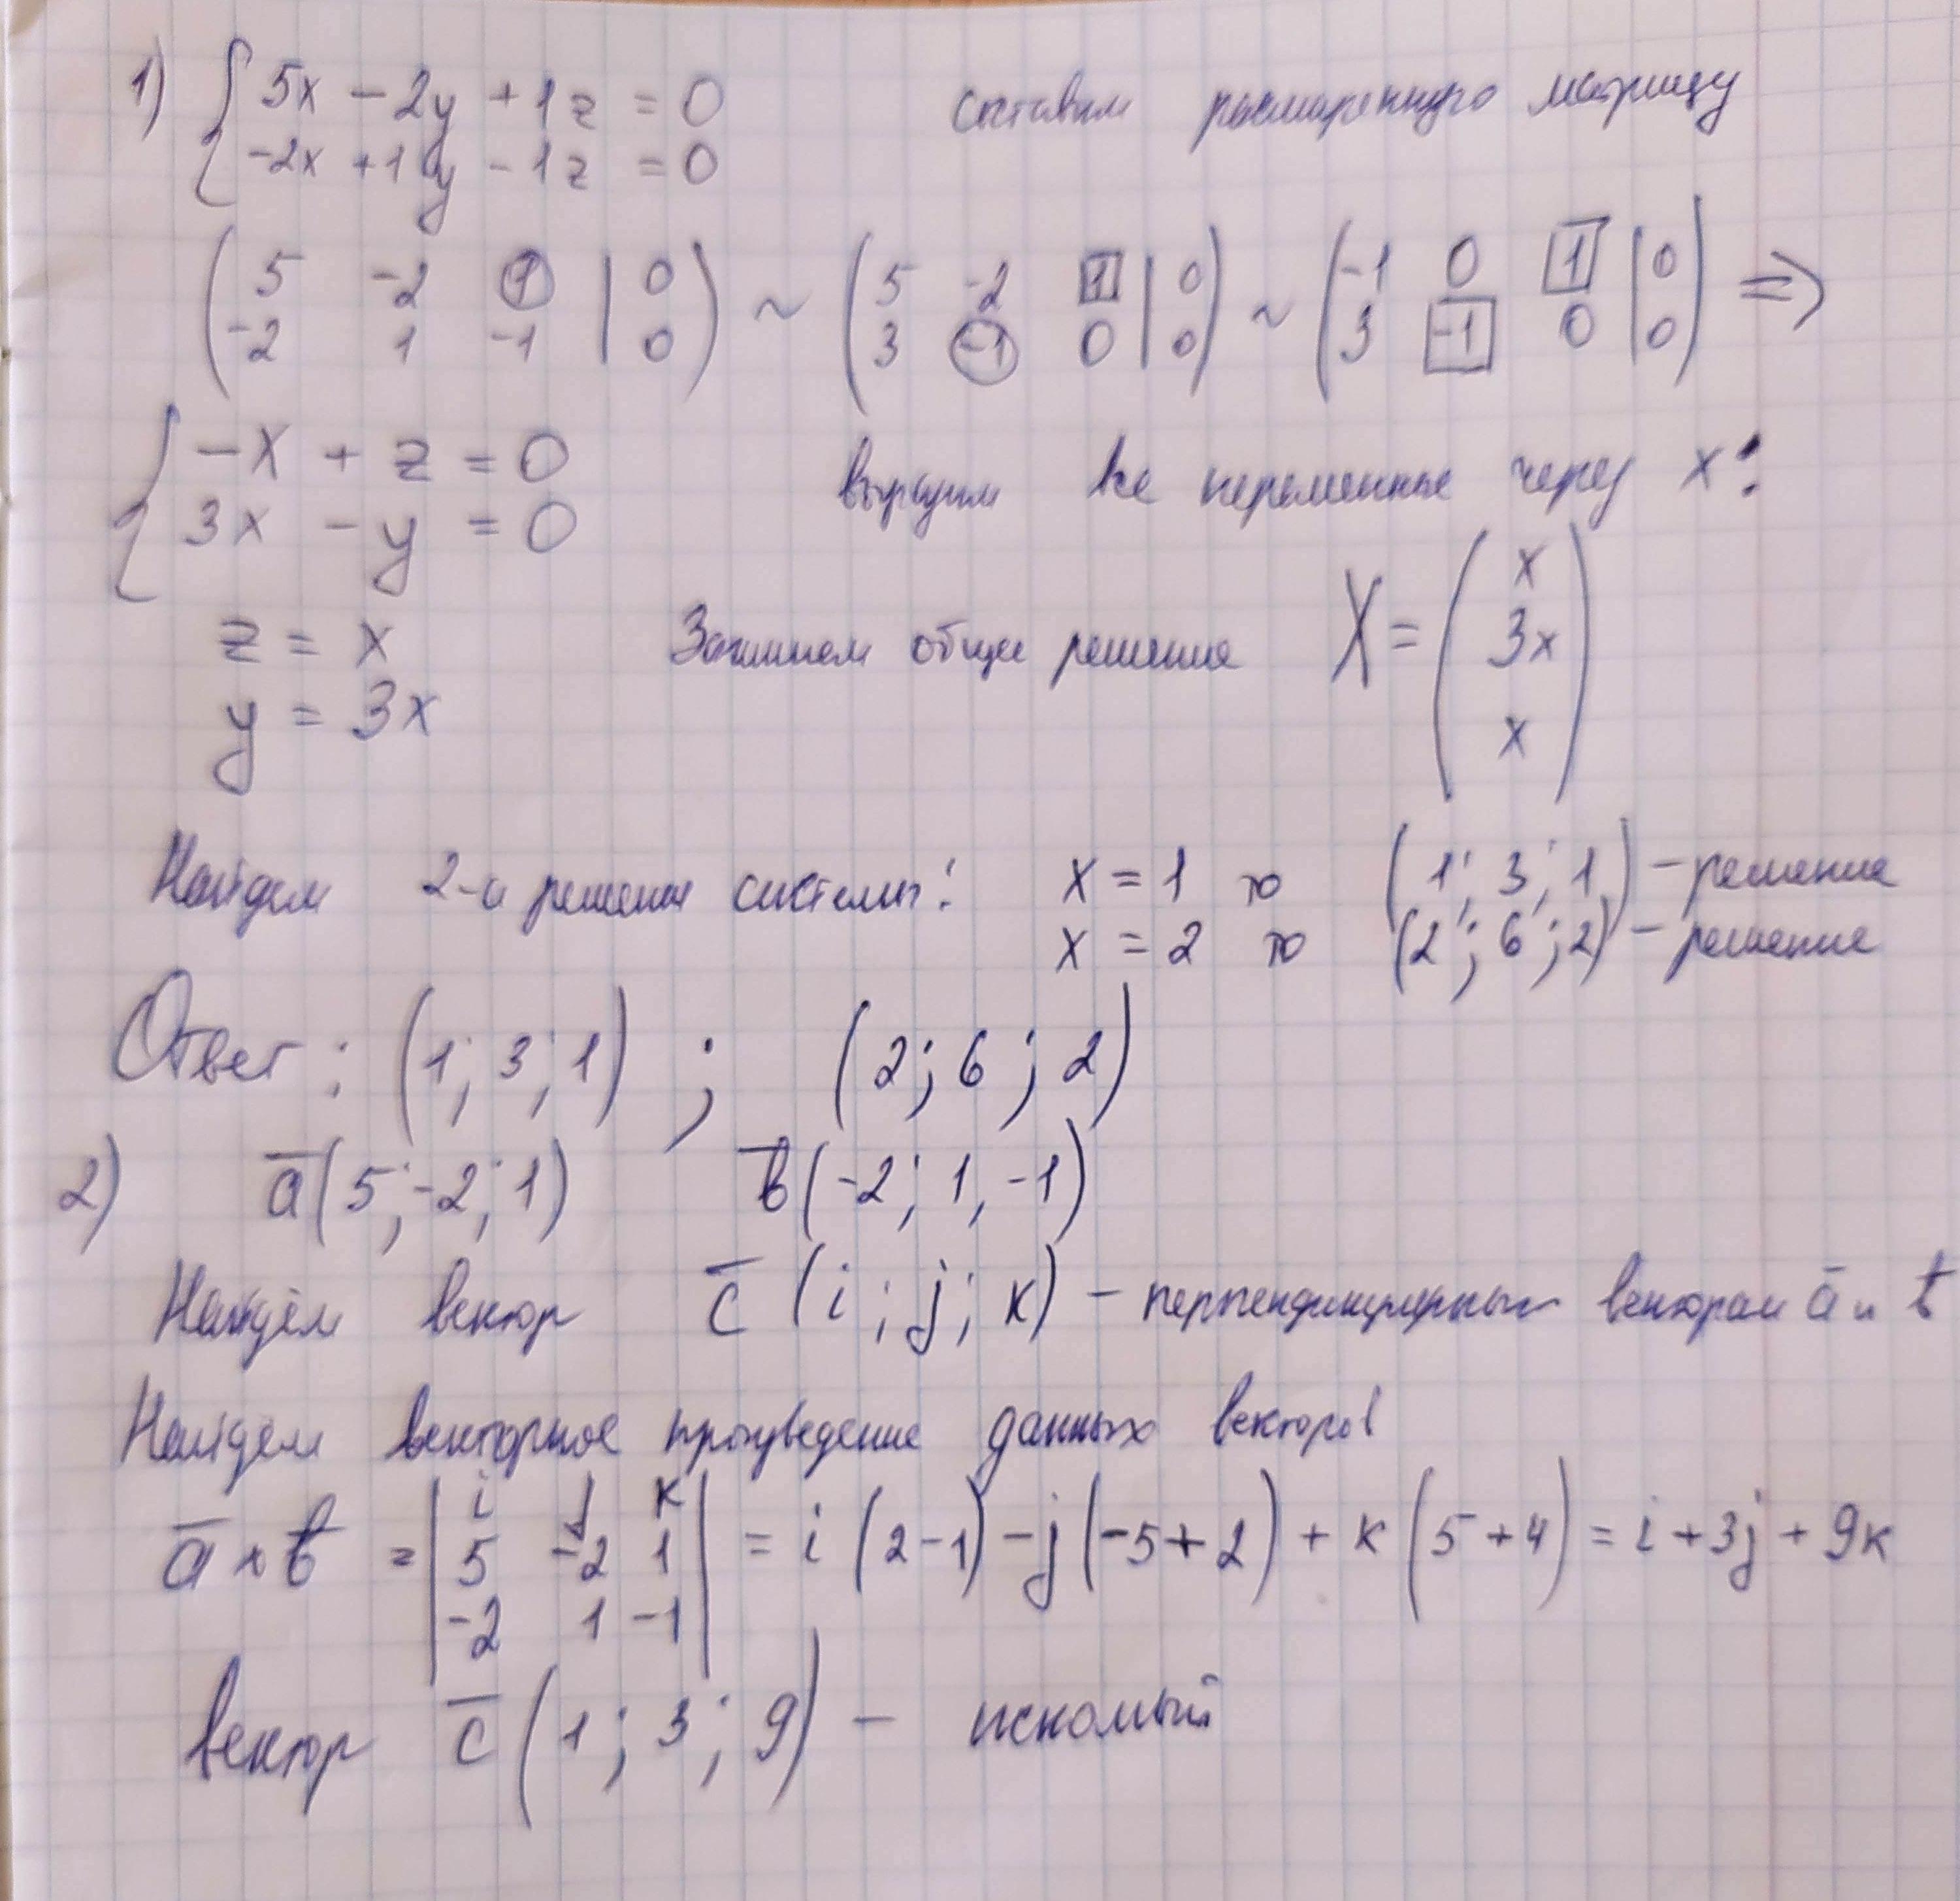 1) { 5x - 2y + 1z = 0 составим расширенную матрицу
-2x + 1y - 1z = 0
( 5 -2 1 | 0 ) ~ ( 5 -2 1 | 0 ) ~ ( -1 0 1 | 0 ) =>
-2 1 -1 | 0 3 -1 0 | 0 3 -1 0 | 0
{ -x + z = 0 выразим все переменные через x:
3x - y = 0
z = x Запишем общее решение X = ( x
3x
x )
y = 3x
Найдем 2-а решения системы: x = 1 то (1; 3; 1) - решение
x = 2 то (2; 6; 2) - решение
Ответ: (1; 3; 1) ; (2; 6; 2)
2) a̅(5; -2; 1) b̅(-2; 1, -1)
Найдём вектор c̅ (i; j; k) - перпендикулярный векторам a̅ и b̅
Найдем векторное произведение данных векторов
a̅ × b̅ = | i j k
5 -2 1
-2 1 -1 | = i (2-1) - j (-5+2) + k (5+4) = i + 3j + 9k
вектор c̅ (1; 3; 9) - искомый